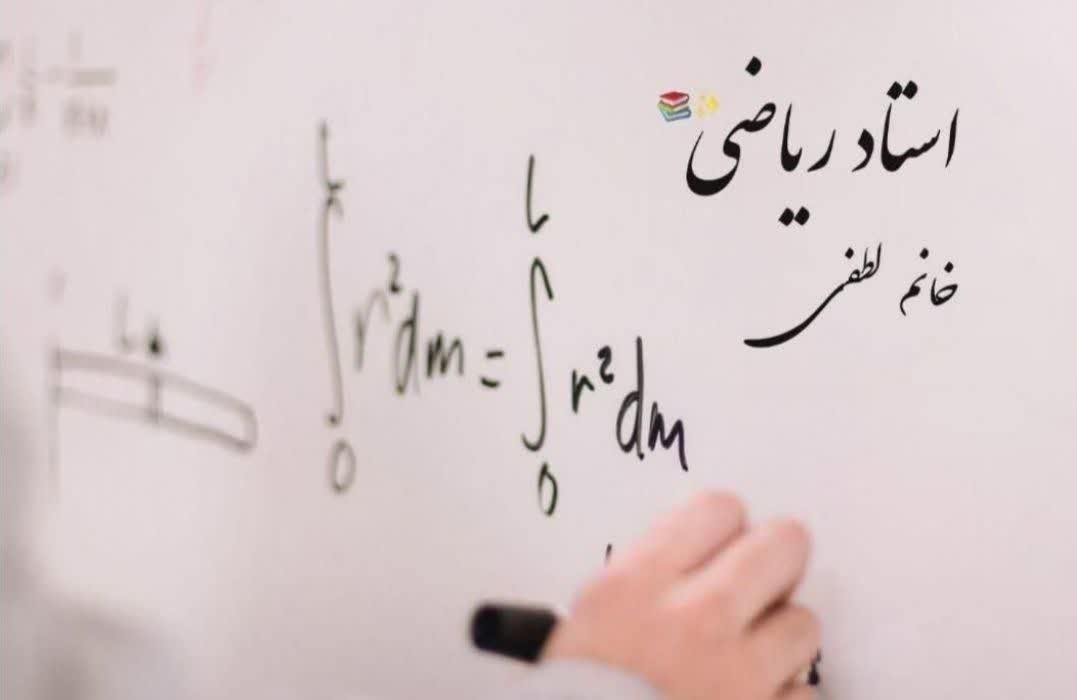 استاد ریاضی
خانم لطفی
L L
∫ r²dm = ∫ r²dm
0 0
L